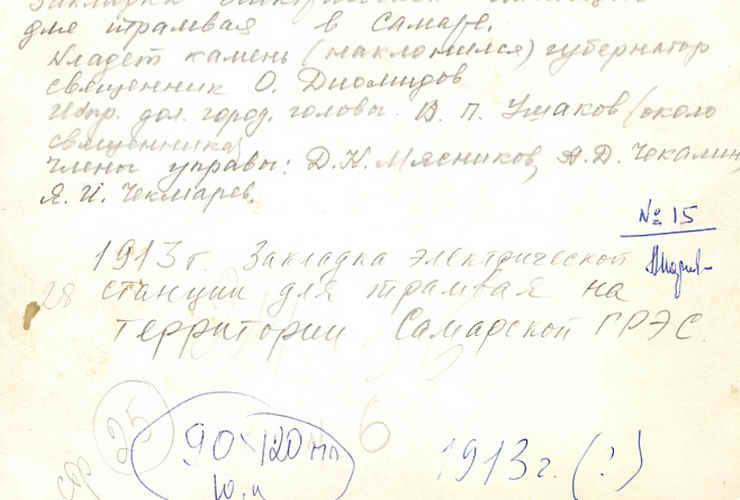 Закладка электрической станции
для трамвая в Самаре.
Кладет камень (наклонился) губернатор
священник О. Диомидов
Испр. дол. город. головы В. П. Ушаков (около
священника)
члены управы: Д.К. Мясников, А.Д. Чекалин,
Я. И. Чекмарев.
№ 15
1913 г. Закладка электрической
28 станции для трамвая на
территории Самарской ГРЭС.
стр 25
90 120 мм
6
1913 г. (?)